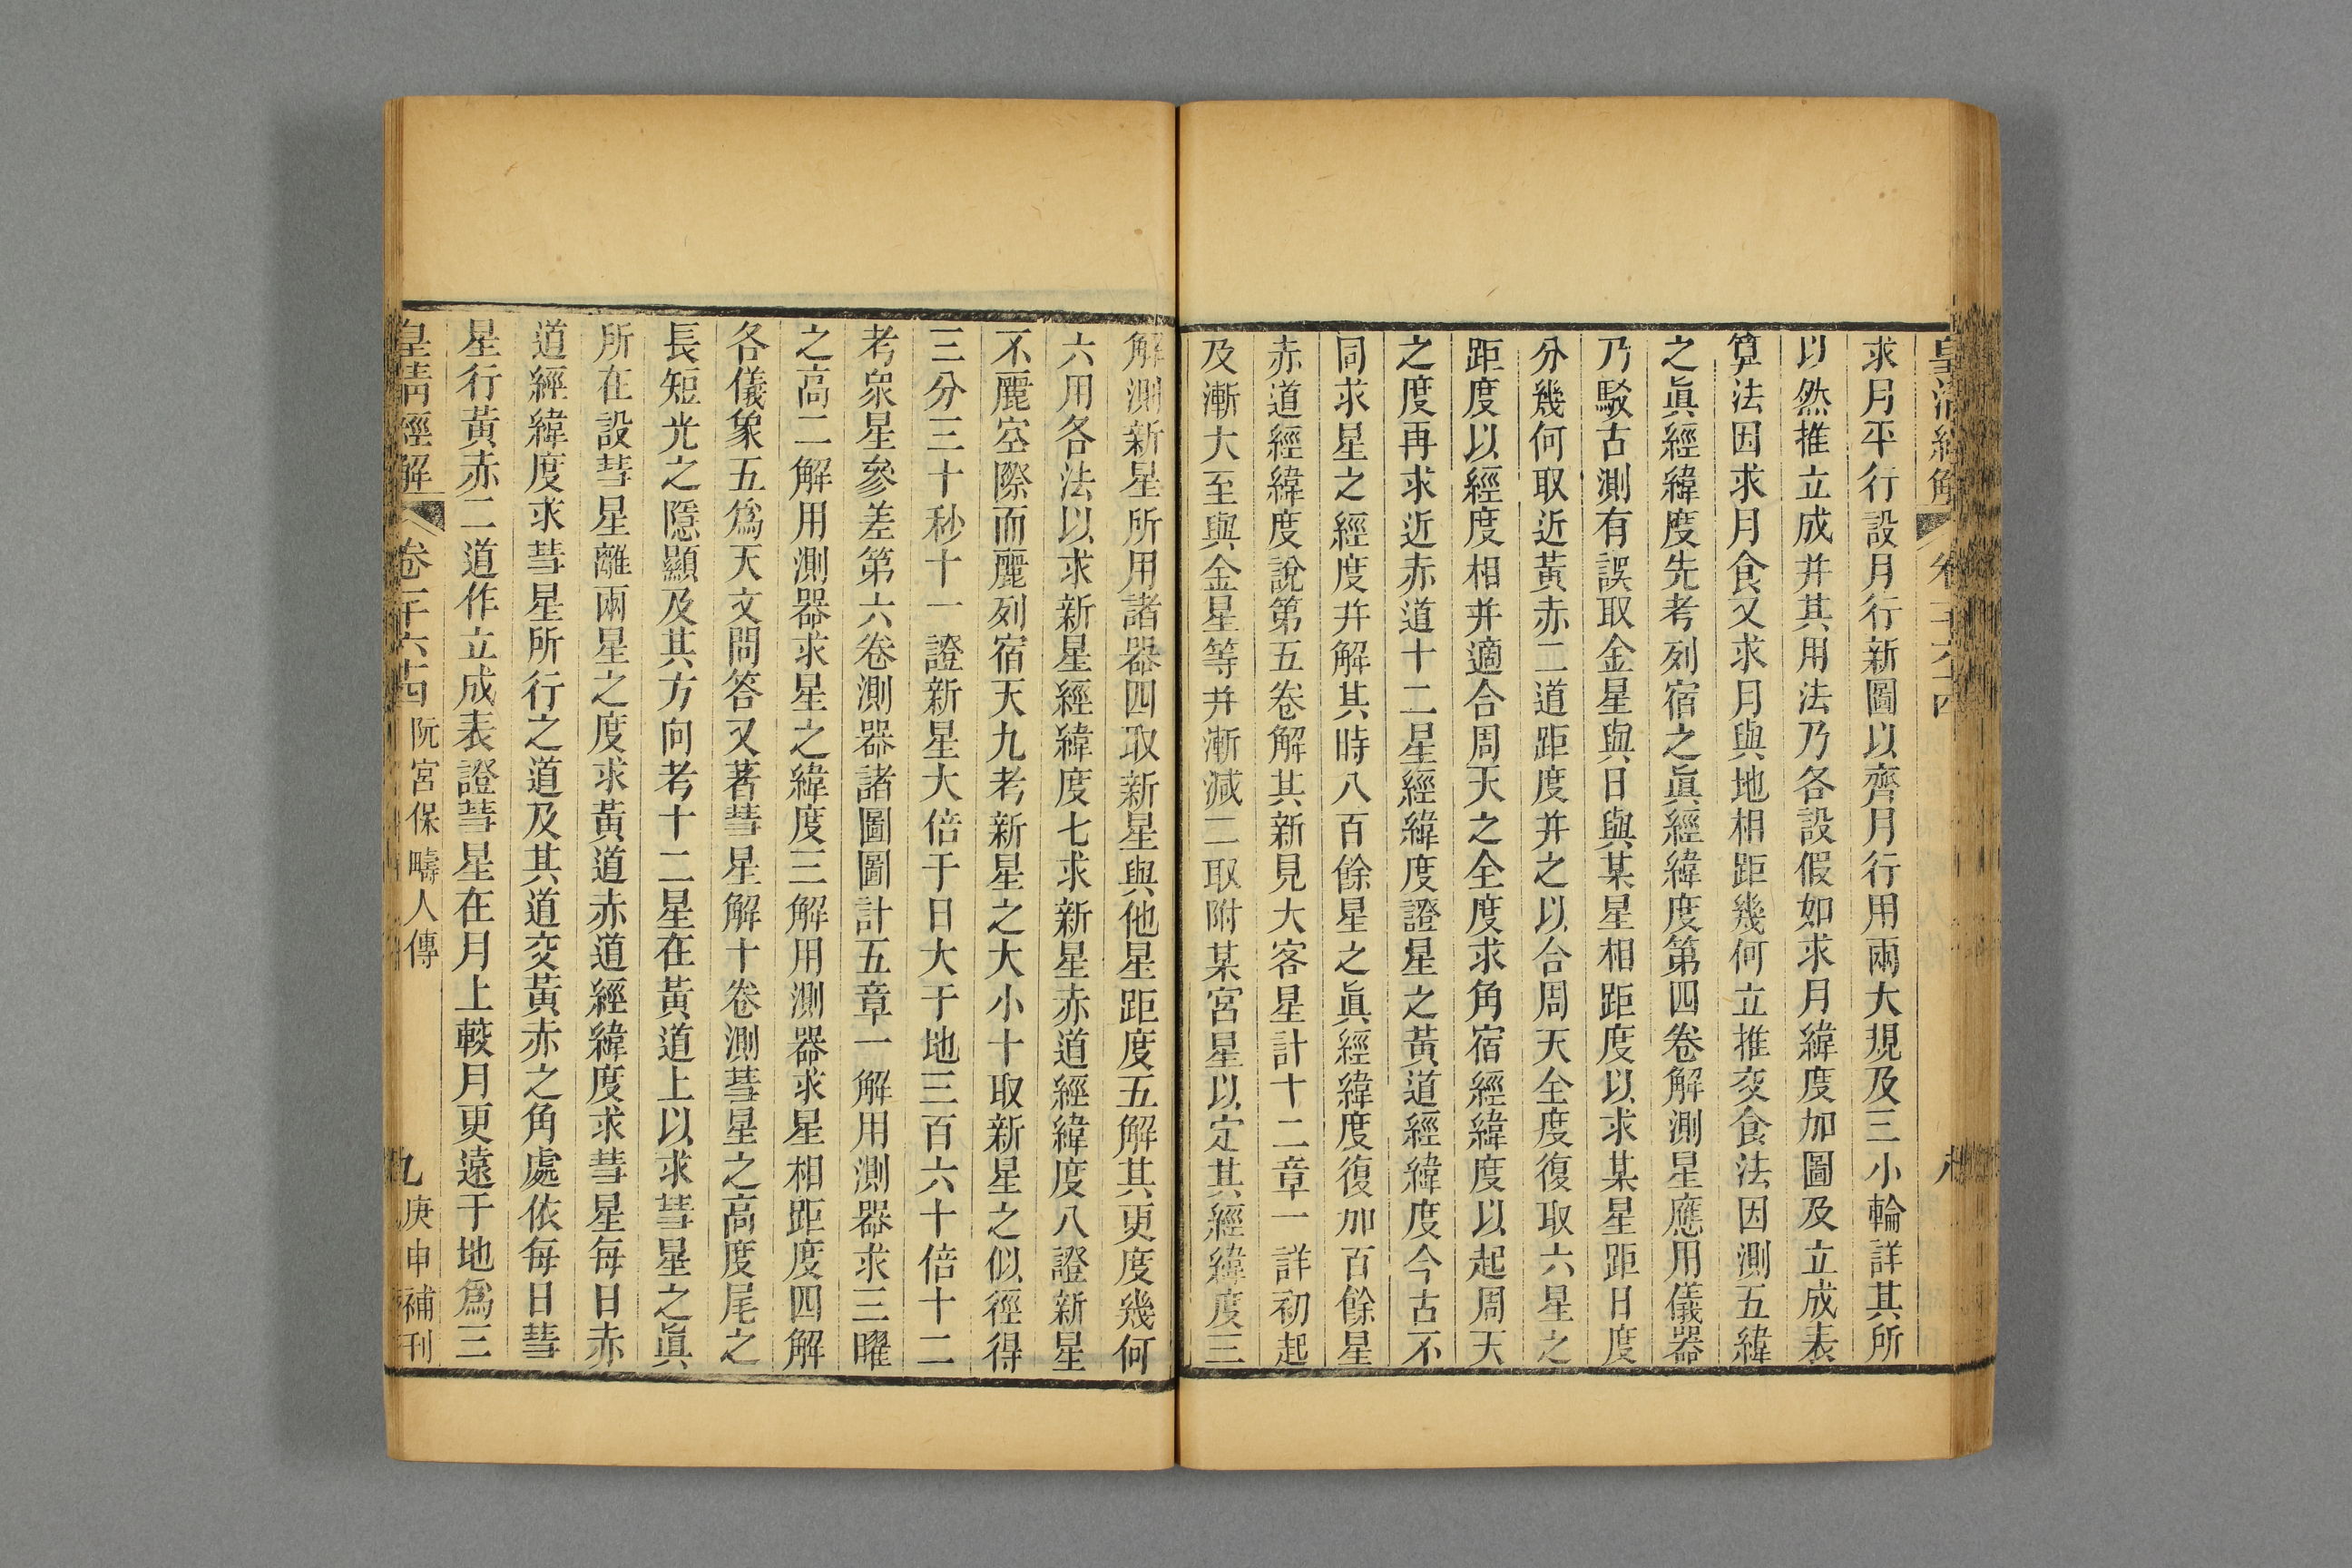 皇清經解
求月平行設月行新圖以齊月行用兩大規及三小輪詳其所
以然推立成并其用法乃各設假如求月緯度加圖及立成表
算法因求月食又求月與地相距幾何立推交食法因測五緯
之眞經緯度先考列宿之眞經緯度第四卷解測星應用儀器
乃駁古測有誤取金星與日與某星相距度以求某星距日度
分幾何取近黃赤二道距度并之以合周天全度復取六星之
距度以經度相并適合周天之全度求角宿經緯度以起周天
之度再求近赤道十二星經緯度證星之黃道經緯度今古不
同求星之經度并解其時八百餘星之眞經緯度復加百餘星
赤道經緯度說第五卷解其新見大客星計十二章一詳初起
及漸大至與金星等并漸減二取附某宮星以定其經緯度三
解測新星所用諸器四取新星與他星距度五解其更度幾何
六用各法以求新星經緯度七求新星赤道經緯度八證新星
不麗空際而麗列宿天九考新星之大小十取新星之似徑得
三分三十秒十一證新星大倍于日大于地三百六十倍十二
考衆星參差第六卷測器諸圖圖計五章一解用測器求三曜
之高二解用測器求星之緯度三解用測器求星相距度四解
各儀象五爲天文問答又著彗星解十卷測彗星之高度尾之
長短光之隱顯及其方向考十二星在黃道上以求彗星之眞
所在設彗星離兩星之度求黃道赤道經緯度求彗星每日赤
道經緯度求彗星所行之道及其道交黃赤之角處依每日彗
星行黃赤二道作立成表證彗星在月上較月更遠于地爲三
皇清經解 卷一千六十四 阮宮保疇人傳 九 庚申補刊